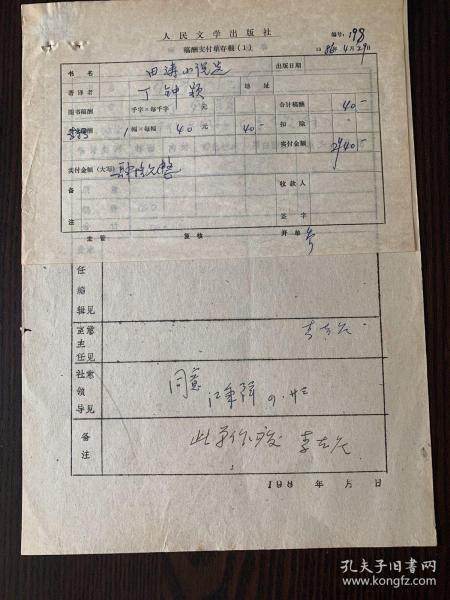 人民文学出版社
编号：198
稿酬实付单存根（1）
1986年4月29日
书名 田涛小说选 出版日期
著译者 丁钟颖 地址
图书稿酬 千字×每千字 元 合计稿酬 40.-
稿酬 1幅×每幅 40元 40.- 扣除
实付金额 40.-
实付金额（大写） 肆拾元整 收款人
备注 签字
主管 复核 开单
任编辑见
室主任意见 李志今
社领导意见 同意 江秉祥 9.廿三
备注 此单作废
198 年 月 日
孔夫子旧书网
www.kongfz.com